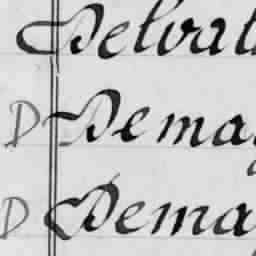 Delvat
D Dema
D Dema